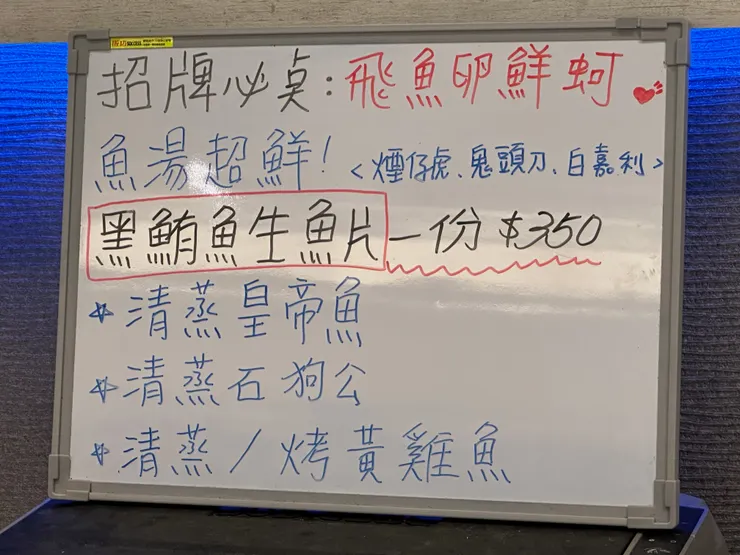 招牌必点:飛魚卵鮮蚵
魚湯超鮮! <煙仔虎、鬼頭刀、白嘉利>
黑鮪魚生魚片一份$350
清蒸皇帝魚
清蒸石狗公
清蒸/烤黃雞魚